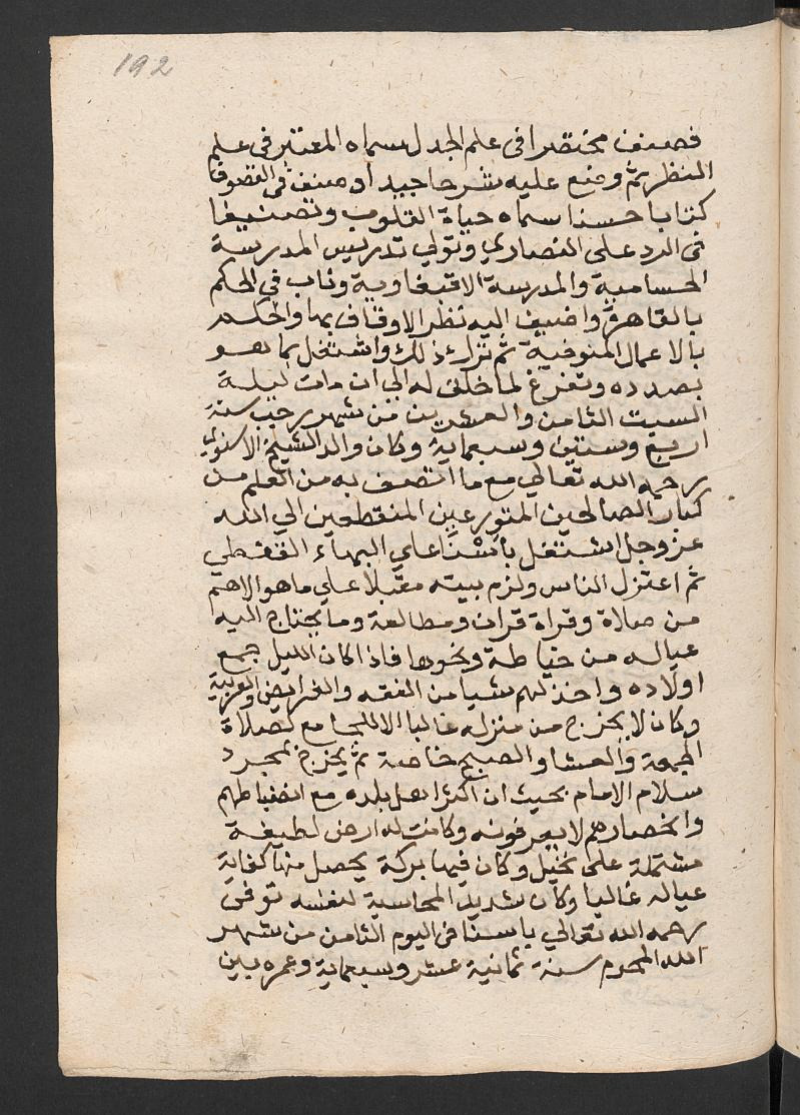 192
فصنف مختصرا فى علم الجدل سماه المعتبر فى علم
النظر ثم وضع عليه شرحا جيدا وصنف فى التصوف
كتابا حسنا سماه حياة القلوب وتصنيفا
فى الرد على النصاري وتولي تدريس المدرسة
الحسامية والمدرسة الاقبغاوية وناب في الحكم
بالقاهرة واضيف اليه نظر الاوقاف بها والحكم
بالاعمال المنوفية ثم ترك ذلك واشتغل بما هو
بصدده وتفرغ لما خلق له الي ان مات ليلة
السبت الثامن والعشرين من شهر رجب سنة
اربع وستين وسبعماية وكان والد الشيخ الاسنوي
رحمه الله تعالي مع ما اتصف به من العلم من
كبار الصالحين المتورعين المنقطعين الي الله
عز وجل اشتغل باسنا علي البهاء القفطي
ثم اعتزل الناس ولزم بيته مقبلا علي ما هو الاهم
من صلاة وقراة قران ومطالعة وما يحتاج اليه
عياله من خياطة ونحوها فاذا كان الليل جمع
اولاده واخذ لهم شيا من الفقه والفرايض والعربية
وكان لا يخرج من منزله غالبا الا للجامع لصلاة
الجمعة والعشا والصبح خاصة ثم يخرج بمجرد
سلام الامام بحيث ان اكثر اهل بلده مع انضباطهم
وانحصارهم لا يعرفونه وكانت له ارض لطيفة
مشتملة علي نخيل وكان فيها بركة يحصل منها كفاية
عياله غالبا وكان شديد المحاسبة لنفسه توفى
رحمه الله تعالي باسنا فى اليوم الثامن من شهر
الله المحرم سنة ثمانية عشر وسبعماية وعمره بين